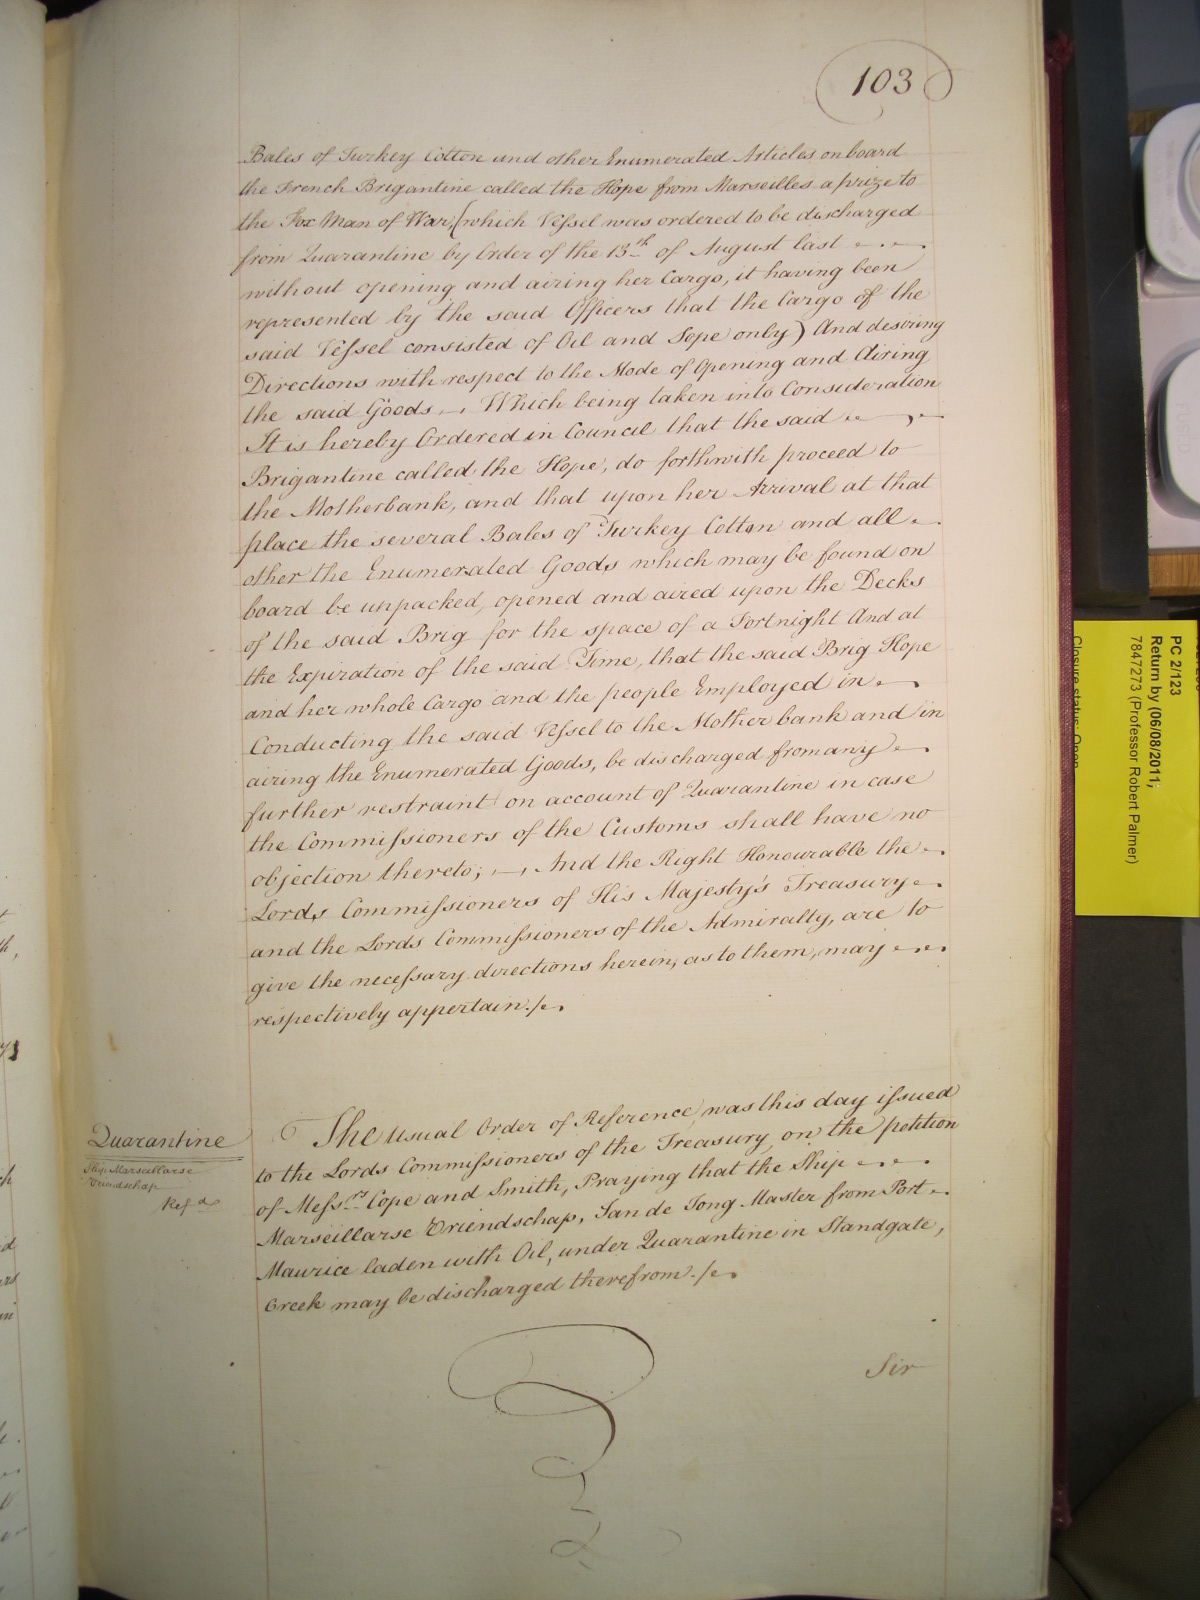 103
Bales of Turkey Cotton and other Enumerated Articles on board
the French Brigantine called the Hope from Marseilles a prize to
the Fox Man of War, (which Vessel was ordered to be discharged
from Quarantine by Order of the 13th of August last
without opening and airing her Cargo, it having been
represented by the said Officers that the Cargo of the
said Vessel consisted of Oil and Sope only) And desiring
Directions with respect to the Mode of Opening and Airing
the said Goods. Which being taken into Consideration
It is hereby Ordered in Council that the said
Brigantine called the Hope, do forthwith proceed to
the Motherbank, and that upon her Arrival at that
place the several Bales of Turkey Cotton and all
other the Enumerated Goods which may be found on
board be unpacked, opened and aired upon the Decks
of the said Brig for the space of a Fortnight And at
the Expiration of the said Time, that the said Brig Hope
and her whole Cargo and the people Employed in
Conducting the said Vessel to the Mother bank and in
airing the Enumerated Goods, be discharged from any
further restraint on account of Quarantine in case
the Commissioners of the Customs shall have no
objection thereto; And the Right Honourable the
Lords Commissioners of His Majesty's Treasury
and the Lords Commissioners of the Admiralty, are to
give the necessary directions herein, as to them, may
respectively appertain./.
Quarantine
Ship Marseillarse
Vriendschap
Refd
The Usual Order of Reference was this day issued
to the Lords Commissioners of the Treasury on the petition
of Messrs Cope and Smith, Praying that the Ship
Marseillarse Vriendschap, Jan de Jong Master from Port
Maurice laden with Oil, under Quarantine in Standgate,
Creek may be discharged therefrom./.
Sir
PC 2/123
Return by (06/08/2011;
7847273 (Professor Robert Palmer)
Closure status: Open